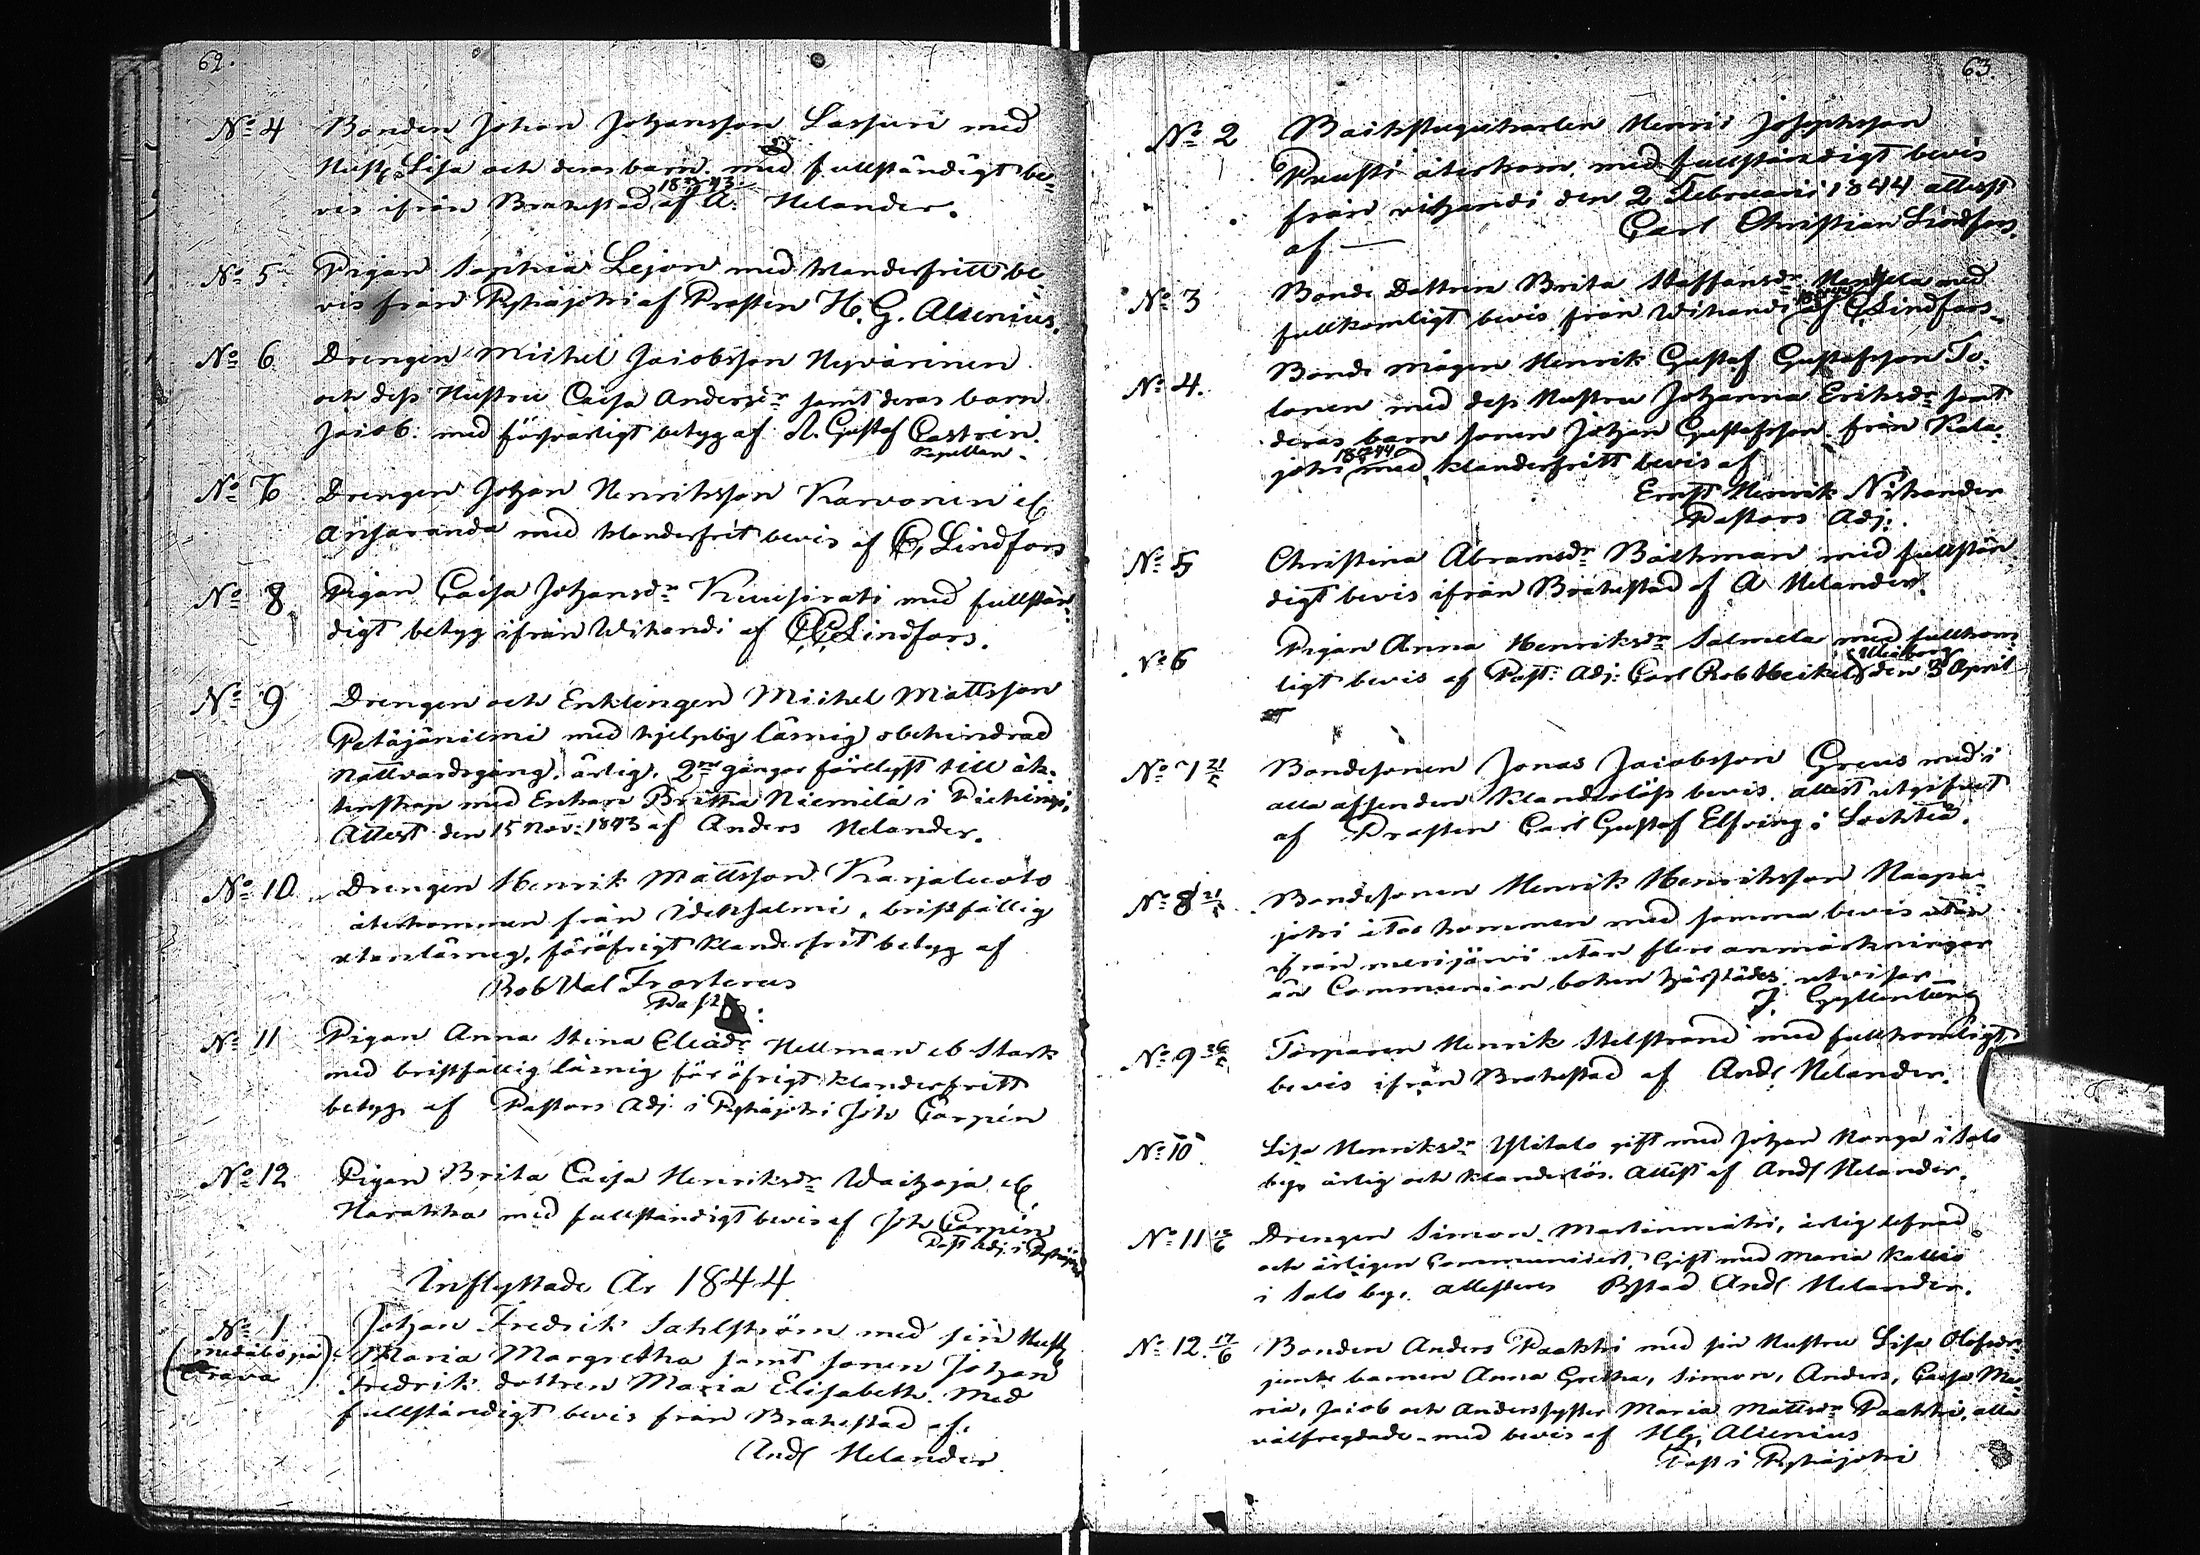 62.
No 4 Bonden Johan Johansson Lassuri med
Hustr. Lisa och deras barn. med fullständigt be-
vis ifrån Brahestad 1843 af A. Helander.
No 5. Pigan Sophia Lejon med klanderfritt be-
vis från Pyhäjoki af Prosten H. G. Alcenius.
No 6 Drengen Michel Jacobsson Hyvärinen
och dess Hustru Caisa Andersdr samt deras barn
Jacob. med försvarligt betyg af A. Gustaf Castrén.
Kapellan.
No 7 Drengen Johan Henriksson Karvonen el.
Ansaranda med klanderfrit bevis af C. Lindfors
No 8. Pigan Caisa Johansdr Kuusirati med fullstän-
digt betyg ifrån Wihandi af C.C. Lindfors.
No 9 Drengen och Enklingen Michel Mattsson
Petäjäniemi med hjelplig läsning obehindrad
Nattvardsgång, ärlig, 2ne gånger förelyst till äk-
tenskap med Enkan Britha Niemilä i Piehingi,
Attest den 15 Nov. 1843 af Anders Helander.
No 10. Drengen Henrik Mattsson Karjaluoto
återkommen från Idensalmi, bristfällig
utanläsning, föröfrigt klanderfrit betyg af
Rob Val Frosterus
Past.
No 11 Pigan Anna Stina Eliædr Hellman el Stark
med bristfällig läsning föröfrigt klanderfritt
betyg af Pastors Adj. i Pyhäjoki Joh Carpén
No 12 Pigan Brita Caisa Henriksdr Waitzoja el.
Harakka med fullständigt bevis af Joh Carpén
Past Adj. i Pyhäjoki
Inflyttade År 1844.
No 1 Johan Fredrik Sahlström med sin Hust
Maria Margretha samt sonen Johan
Fredrik dottren Maria Elisabeth. Med
fullständigt bevis från Brahestad af.
And. Helander
63.
No 2 Backstuguskarlen Henric Josephsson
Prusti återkom. med fullständigt bevis
från vihandi den 2 Februari 1844 attest
af — Carl Christian Lindfors.
No 3 Bonde Dottren Brita Staffansdr med
fullkomligt bevis från Wihandi af C. Lindfors.
No 4. Bonde mågen Henrik Gustaf Gustafsson To-
lonen med dess Hustru Johanna Eriksdr samt
deras barn sonen Johan Gustafsson från Kala-
joki 1844 med klanderfritt bevis af
Ernst Henrik Nihander
Pastors Adj:
No 5 Christina Abramsdr Bäckman med fullstän
digt bevis ifrån Brahestad af A Helander.
No 6 Pigan Anna Henriksdr Salmela med fullkom-
ligt bevis af Past: Adj: Carl Rob Heikel Uleåborg den 3 April
No 7 21/5 Bondesonen Jonas Jacobsson Greus med i
alla afseenden klanderlöst bevis. attest utgifvet
af Prosten Carl Gustaf Elfving i Lochteå.
No 8 21/5. Bondesonen Henrik Henriksson Haapa-
joki åter kommen med samma bevis utan
ifrån merijärvi utan flere anmärkningar
än Communion boken härstädes utvisar
J. Gyllenberg
No 9 26/5. Torparen Henrik Stelstrand med fullkomligt
bevis ifrån Brahestad af And. Helander.
No 10. Lisa Henriksdr Ylitalo gift med Johan Monga i Salo
by, ärlig och klanderlös. Attest af And. Helander.
No 11 Drengen Simon Martinmäki, ärlig lefnad
och ärligen Communicert, Gift med Maria Kallio
i Salo by. attesteres Bstad And. Helander.
No 12. 17/6 Bonden Anders Paakki med sin Hustru Lisa Olofsdr
jemte barnen Anna Gretha, Simon, Anders, Caisa Ma-
ria, Jacob och Anders syster Maria Mattsdr Paakki, alla
välfregdade med bevis af H.G. Alcenius
Past i Pyhäjoki